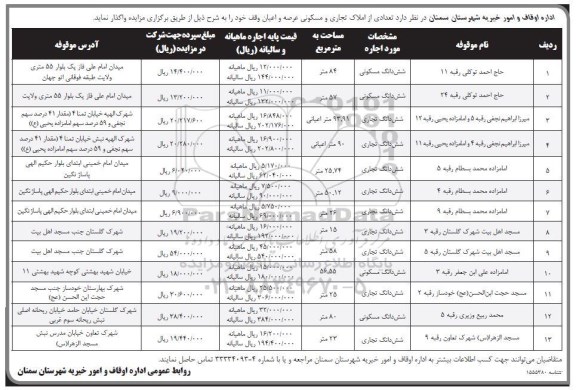 اداره اوقاف و امور خیریه شهرستان سمنان در نظر دارد تعدادی از املاک تجاری و مسکونی عرصه و اعیان وقف خود را به شرح ذیل از طریق برگزاری مزایده واگذار نماید.
ردیف نام موقوفه مشخصات مورد اجاره مساحت به مترمربع قیمت پایه اجاره ماهیانه و سالیانه (ریال) مبلغ سپرده جهت شرکت در مزایده (ریال) آدرس موقوفه
۱ حاج احمد توکلی رقبه ۱۱ شش‌دانگ مسکونی ۸۴ متر ۱۲/۰۰۰/۰۰۰ ریال ماهیانه ۱۴۴/۰۰۰/۰۰۰ ریال سالیانه ۱۴/۴۰۰/۰۰۰ ریال میدان امام علی فاز یک بلوار ۵۵ متری ولایت طبقه فوقانی اتو جهان
۲ حاج احمد توکلی رقبه ۲۴ شش‌دانگ مسکونی ۵۷ متر ۱۱/۰۰۰/۰۰۰ ریال ماهیانه ۱۳۲/۰۰۰/۰۰۰ ریال سالیانه ۱۳/۲۰۰/۰۰۰ ریال میدان امام علی فاز یک بلوار ۵۵ متری ولایت
۳ میرزا ابراهیم نجفی رقبه ۵ و امامزاده یحیی رقبه ۱۲ شش‌دانگ تجاری ۹۳,۹۱ متر اعیانی ۱۶/۸۴۸/۰۰۰ ریال ماهیانه ۲۰۲/۱۷۶/۰۰۰ ریال سالیانه ۲۰/۲۱۷/۶۰۰ ریال شهرک الهیه خیابان تمنا ۴ (مقدار ۴۱ درصد سهم نجفی و ۵۹ درصد سهم امامزاده یحیی (ع))
۴ میرزا ابراهیم نجفی رقبه ۴ و امامزاده یحیی رقبه ۱۱ شش‌دانگ تجاری ۹۰ متر اعیانی ۱۶/۹۰۰/۰۰۰ ریال ماهیانه ۲۰۲/۸۰۰/۰۰۰ ریال سالیانه ۲۰/۲۸۰/۰۰۰ ریال شهرک الهیه نبش خیابان تمنا ۴ (مقدار ۴۱ درصد نجفی و ۵۹ درصد سهم امامزاده یحیی (ع))
۵ امامزاده محمد بسطام رقبه ۵ شش‌دانگ تجاری ۲۵,۷۴ متر ۵/۱۷۰/۰۰۰ ریال ماهیانه ۶۲/۰۴۰/۰۰۰ ریال سالیانه میدان امام خمینی ابتدای بلوار حکیم الهی پاساژ نگین
۶ امامزاده محمد بسطام رقبه ۴ شش‌دانگ تجاری ۵۰,۱۲ متر ۷/۵۰۰/۰۰۰ ریال ماهیانه ۹۰/۰۰۰/۰۰۰ ریال سالیانه ۹/۰۰۰/۰۰۰ ریال میدان امام خمینی ابتدای بلوار حکیم الهی پاساژ نگین
۷ امامزاده محمد بسطام رقبه ۹ شش‌دانگ تجاری ۲۶ متر ۵/۷۵۰/۰۰۰ ریال ماهیانه ۶۹/۰۰۰/۰۰۰ ریال سالیانه ۶/۹۰۰/۰۰۰ ریال میدان امام خمینی ابتدای بلوار حکیم الهی پاساژ نگین
۸ مسجد اهل بیت شهرک گلستان رقبه ۳ شش‌دانگ تجاری ۱۵ متر ۱۶/۰۰۰/۰۰۰ ریال ماهیانه ۱۹۲/۰۰۰/۰۰۰ ریال سالیانه ۱۹/۲۰۰/۰۰۰ ریال شهرک گلستان جنب مسجد اهل بیت
۹ مسجد اهل بیت شهرک گلستان رقبه ۵ شش‌دانگ تجاری ۵۸ متر ۴۵/۰۰۰/۰۰۰ ریال ماهیانه ۵۴۰/۰۰۰/۰۰۰ ریال سالیانه ۵۴/۰۰۰/۰۰۰ ریال شهرک گلستان جنب مسجد اهل بیت
۱۰ امامزاده علی ابن جعفر رقبه ۳ شش‌دانگ مسکونی ۵۶,۵۵ ۱۵/۰۰۰/۰۰۰ ریال ماهیانه ۱۸۰/۰۰۰/۰۰۰ ریال سالیانه ۱۸/۰۰۰/۰۰۰ ریال خیابان شهید بهشتی کوچه شهید بهشتی ۱۱
۱۱ مسجد حجت ابن‌الحسن (عج) خودساز رقبه ۲ شش‌دانگ تجاری ۲۵ متر ۲۵/۵۰۰/۰۰۰ ریال ماهیانه ۳۰۶/۰۰۰/۰۰۰ ریال سالیانه ۳۰/۶۰۰/۰۰۰ ریال شهرک بهارستان خودساز جنب مسجد حجت ابن الحسن (عج)
۱۲ محمد ربیع وزیری رقبه ۵ شش‌دانگ مسکونی ۸۰ متر ۳۲/۰۰۰/۰۰۰ ریال ماهیانه ۳۸۴/۰۰۰/۰۰۰ ریال سالیانه ۳۸/۴۰۰/۰۰۰ ریال شهرک گلستان خیابان حامد خیابان ریحانه اصلی نبش ریحانه سوم غربی
۱۳ مسجد الزهرا(س) شهرک تعاون رقبه ۹ شش‌دانگ تجاری ۲۳ متر ۱۶/۲۰۰/۰۰۰ ریال ماهیانه ۱۹۴/۴۰۰/۰۰۰ ریال سالیانه ۱۹/۴۴۰/۰۰۰ ریال شهرک تعاون خیابان مدرس نبش مسجد الزهرا(س)
متقاضیان می‌توانند جهت کسب اطلاعات بیشتر به اداره اوقاف و امور خیریه شهرستان سمنان مراجعه و یا با شماره ۴-۳۳۳۳۴۰۹۳ تماس حاصل نمایند.
روابط عمومی اداره اوقاف و امور خیریه شهرستان سمنان
شناسه ۱۵۵۵۳۸۰